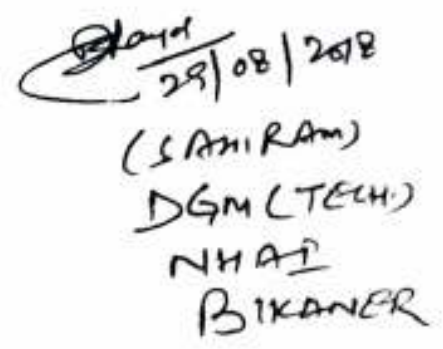 29/08/2018
(SAHIRAM)
DGM (TECH.)
NHAI
BIKANER